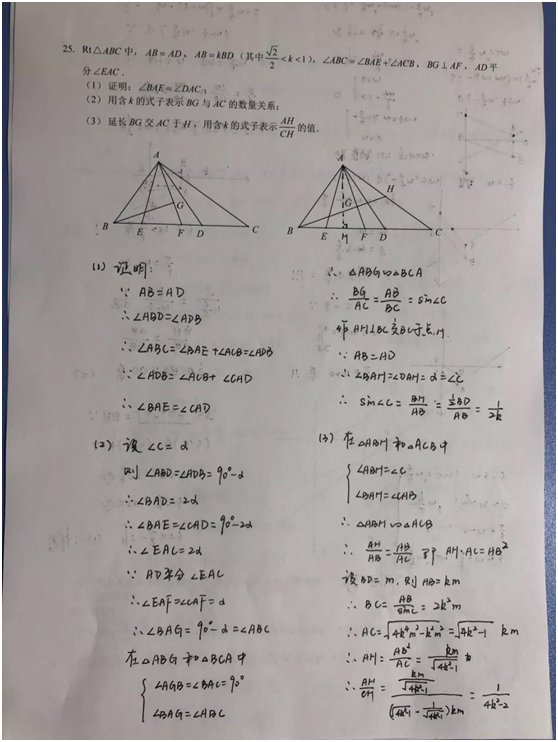 25. Rt△ABC 中，AB=AD，AB=kBD（其中 √2/2 <k<1），∠ABC=∠BAE+∠ACB，BG⊥AF，AD平
分∠EAC．
（1）证明：∠BAE=∠DAC；
（2）用含k的式子表示BG与AC的数量关系；
（3）延长BG交AC于H，用含k的式子表示 AH/CH 的值．
A
G
B E F D C
A
H
G
B E M F D C
(1) 证明：
∵ AB=AD
∴∠ABD=∠ADB
∴∠ABC=∠BAE+∠ACB=∠ADB
∵∠ADB=∠ACB+∠CAD
∴∠BAE=∠CAD
(2) 设 ∠C=α
则 ∠ABD=∠ADB=90°-α
∴∠BAD=2α
∴∠BAE=∠CAD=90°-2α
∴∠EAC=2α
∵ AD平分∠EAC
∴∠EAF=∠CAF=α
∴∠BAG=90°-α=∠ABC
在△ABG和△BCA中
∠AGB=∠BAC=90°
∠BAG=∠ABC
∴△ABG∽△BCA
∴ BG/AC = AB/BC = sin∠C
作AM⊥BC交BC于点M.
∵ AB=AD
∴∠BAM=∠DAM=α=∠C
∴ sin∠C = BM/AB = ½BD/AB = 1/2k
(3) 在△ABH和△ACB中
∠ABH=∠C
∠BAH=∠CAB
∴△ABH∽△ACB
∴ AH/AB = AB/AC 即 AH·AC=AB²
设BD=m，则AB=km
∴ BC= AB/sinC = 2k²m
∴ AC=√(4k⁴m²-k²m²)=√(4k²-1) km
∴ AH= AB²/AC = km/√(4k²-1)
∴ AH/CH = (km/√(4k²-1))/((√(4k²-1) - 1/√(4k²-1))km) = 1/(4k²-2)